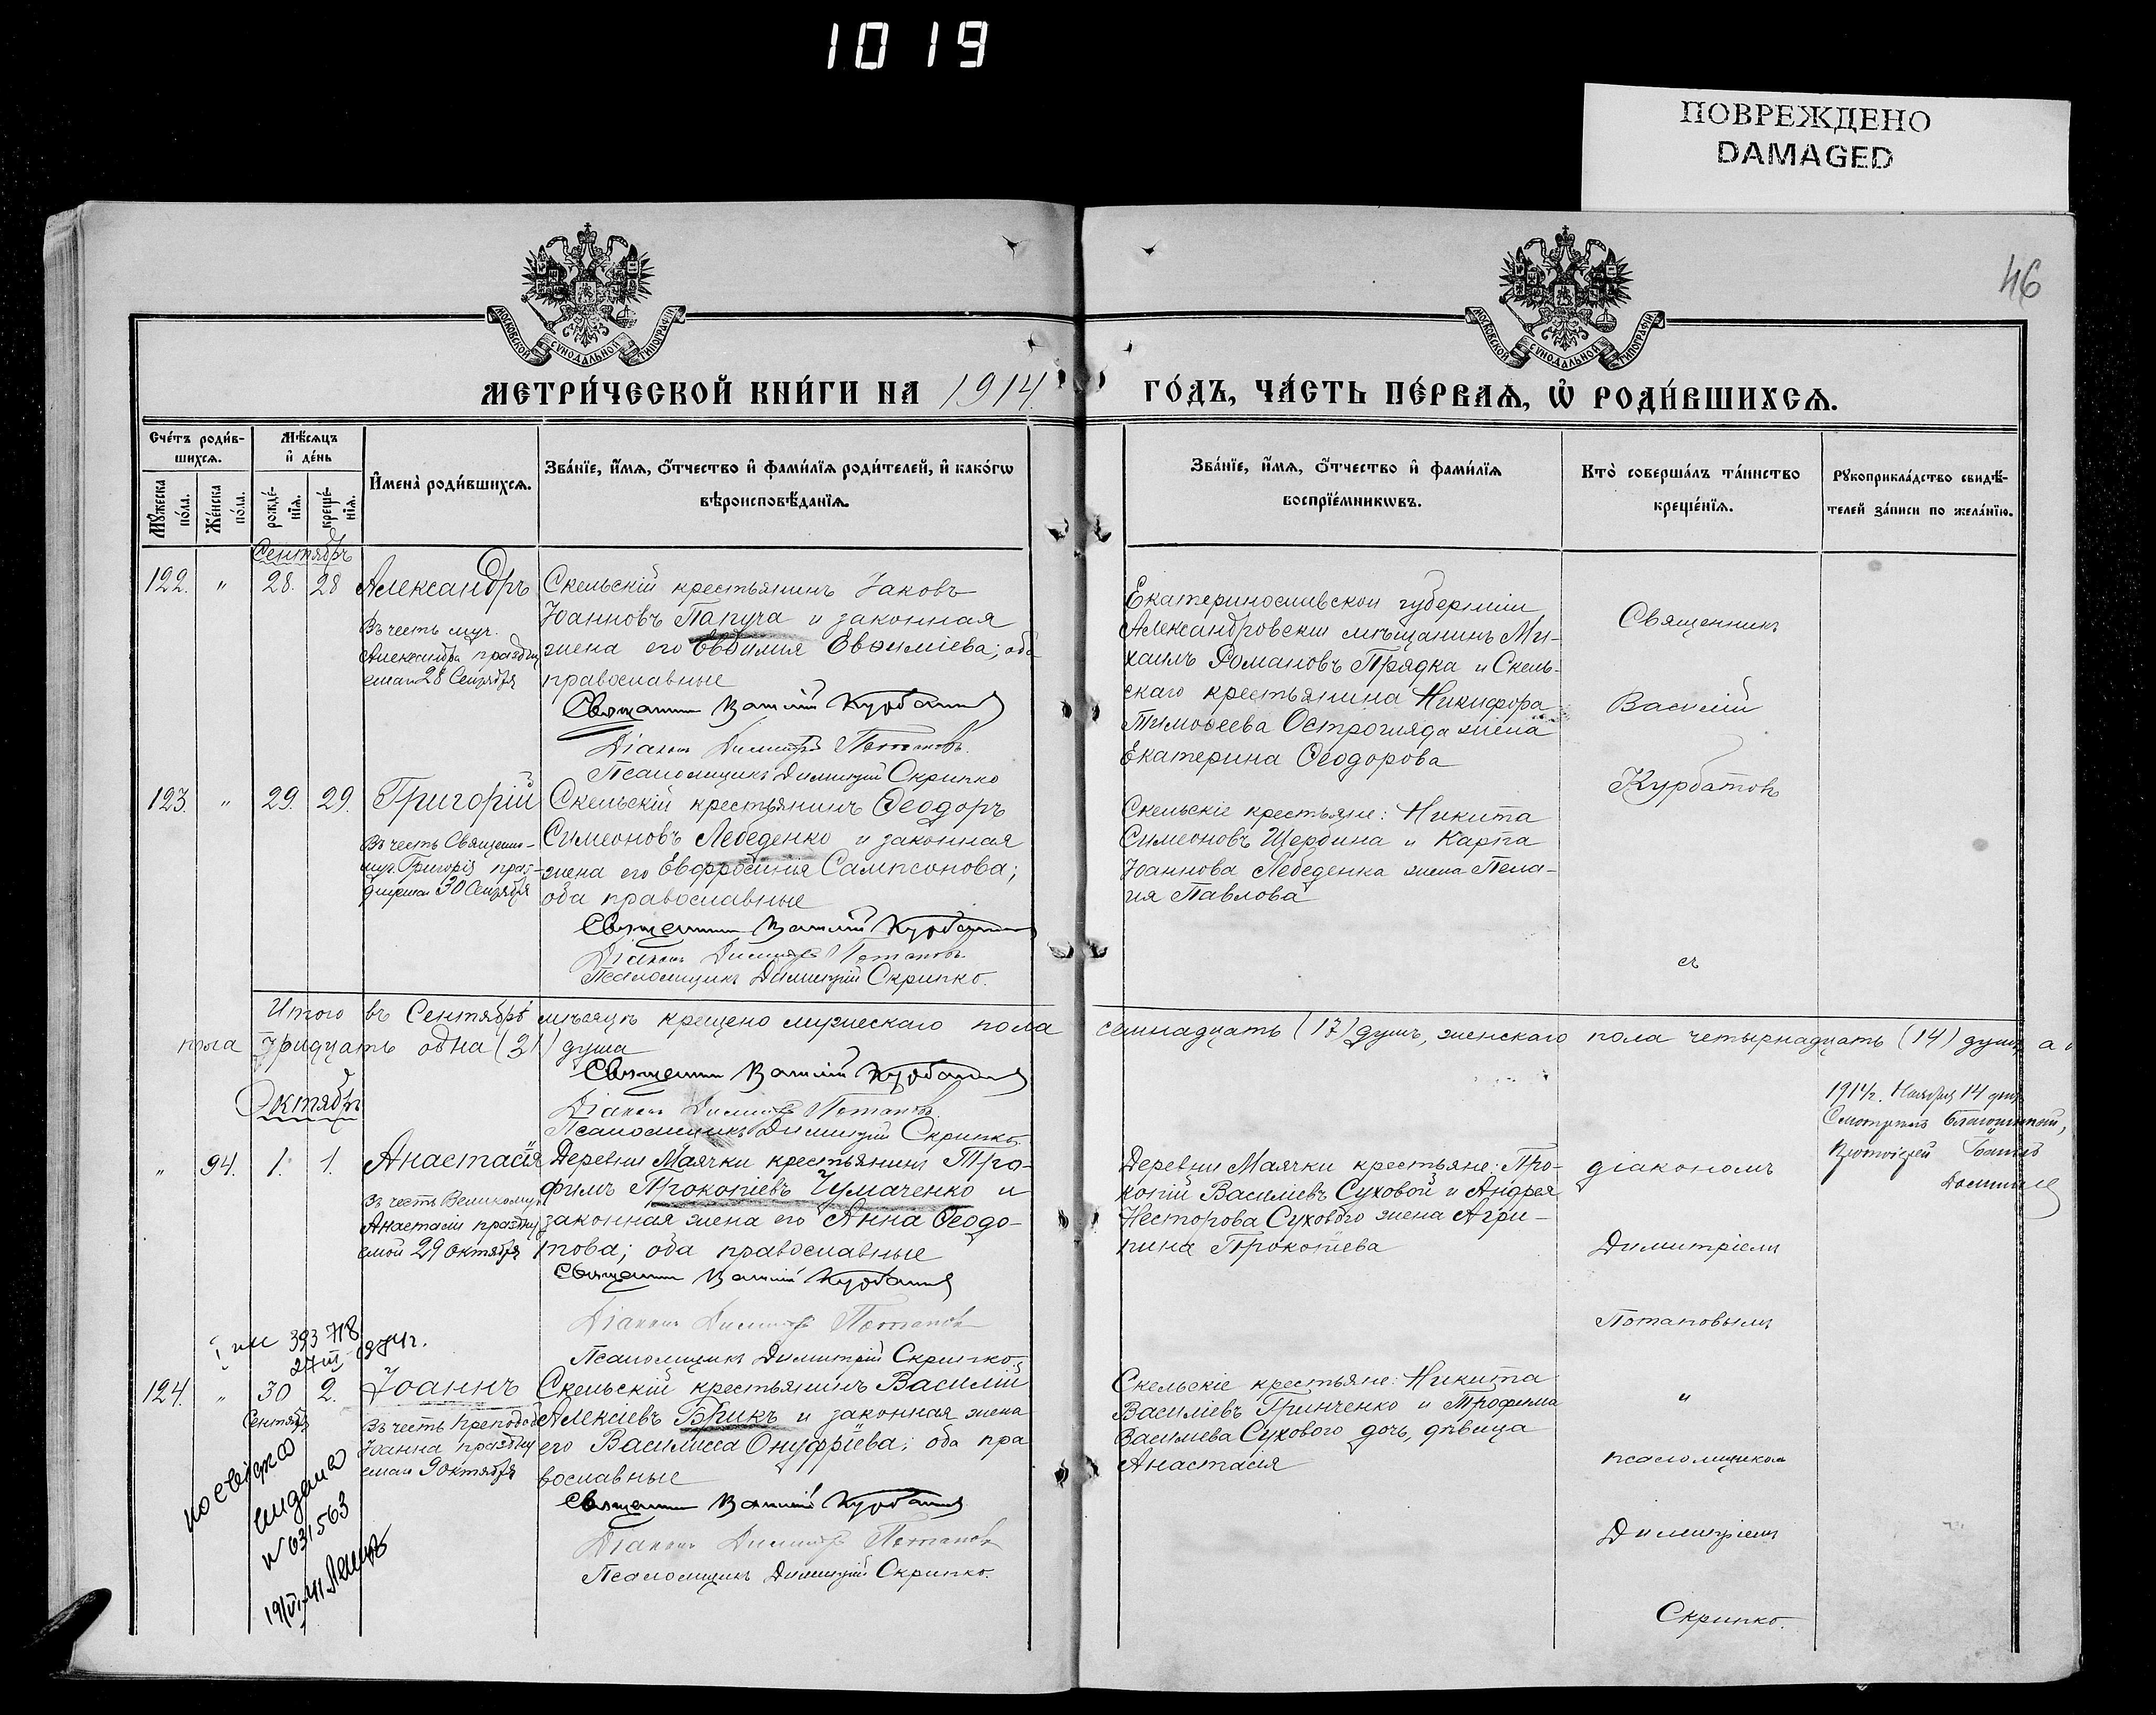 1019
ПОВРЕЖДЕНО
DAMAGED
46
МОСКОВСКОЙ СѴНОДАЛЬНОЙ ТИПОГРАФІИ
МОСКОВСКОЙ СѴНОДАЛЬНОЙ ТИПОГРАФІИ
МЕТРИ́ЧЕСКОЙ КНИ́ГИ НА 1914.
ГО́ДЪ, ЧА́СТЬ ПЕ́РВАѦ, Ѡ҆ РОДИ́ВШИХСѦ.
Сче́тъ роди́в-
шихсѧ.
Мꙋ́жеска по́ла.
Же́нска по́ла.
Мѣ́сѧцъ
и҆ де́нь
рожде́-
нїѧ.
креще́-
нїѧ.
И҆мена̀ роди́вшихсѧ.
Зва́нїе, и҆́мѧ, ѻ҆́тчество и҆ фами́лїѧ роди́телей, и҆ како́гѡ
вѣроисповѣ́данїѧ.
Зва́нїе, и҆́мѧ, ѻ҆́тчество и҆ фами́лїѧ
воспрїе́мникѡвъ.
Кто̀ соверша́лъ та́инство
креще́нїѧ.
Рꙋкоприкла́дство свидѣ́-
телей за́писи по жела́нїю.
Сентябрь
122. " 28. 28 Александръ
Въ честь муч.
Александра празднуемаго 28 Сентября
Скельскій крестьянинъ Іаковъ
Іоанновъ Папуча и законная
жена его Евѳимія Евѳиміева; оба
православные
Священникъ Василій Курбатовъ
Діаконъ Димитрій Потаповъ.
Псаломщикъ Димитрій Скрипко
Екатеринославской губерніи
Александровскій мѣщанинъ Ми-
хаилъ Романовъ Прядка и Скель-
скаго крестьянина Никифора
Тимоѳеева Острогляда жена
Екатерина Ѳеодорова
Священникъ
Василій
Курбатовъ
123. " 29. 29. Григорій
Въ честь Священно-
муч. Григорія праз-
днуемаго 30 Сентября
Скельскій крестьянинъ Ѳеодоръ
Симеоновъ Лебеденко и законная
жена его Евфросинія Сампсонова;
оба православные
Священникъ Василій Курбатовъ
Діаконъ Димитрій Потаповъ
Псаломщикъ Димитрій Скрипко.
Скельскіе крестьяне: Никита
Симеоновъ Щербина и Карпа
Іоаннова Лебеденка жена Пела-
гія Павлова
съ
Итого въ Сентябрѣ мѣсяцѣ крещено мужескаго пола семнадцать (17) душъ, женскаго пола четырнадцать (14) душъ, а
пола тридцать одна (31) душа
Священникъ Василій Курбатовъ
Діаконъ Димитрій Потаповъ.
Псаломщикъ Димитрій Скрипко.
1914 г. Ноября 14 дня
Смотрѣлъ Благочинный,
Протоіерей Іоаннъ
Октябрь
" 94. 1. 1. Анастасія
Въ честь Великомуч.
Анастасіи празднуемой 29 Октября
Деревни Маячки крестьянинъ Тро-
фимъ Прокопіевъ Чумаченко и
законная жена его Анна Ѳеодо-
рова; оба православные
Священникъ Василій Курбатовъ
Діаконъ Димитрій Потаповъ
Псаломщикъ Димитрій Скрипко.
Деревни Маячки крестьяне: Про-
копій Василіевъ Суховой и Андрея
Несторова Сухового жена Агри-
пина Прокопіева
діакономъ
Димитріемъ
Потаповымъ
393718
27 III 1974 г.
124. " 30 2. Іоаннъ
Сентября
Въ честь преподоб.
Іоанна празднуемаго 9 октября
Скельскій крестьянинъ Василій
Алексіевъ Брикъ и законная жена
его Василисса Онуфріева; оба пра
вославные
Священникъ Василій Курбатовъ
Діаконъ Димитрій Потаповъ
Псаломщикъ Димитрій Скрипко.
Скельскіе крестьяне: Никита
Василіевъ Гринченко и Трофима
Василіева Сухового дочь, дѣвица
Анастасія
"
псаломщикомъ
Димитріемъ
Скрипко.
видана
N 631563